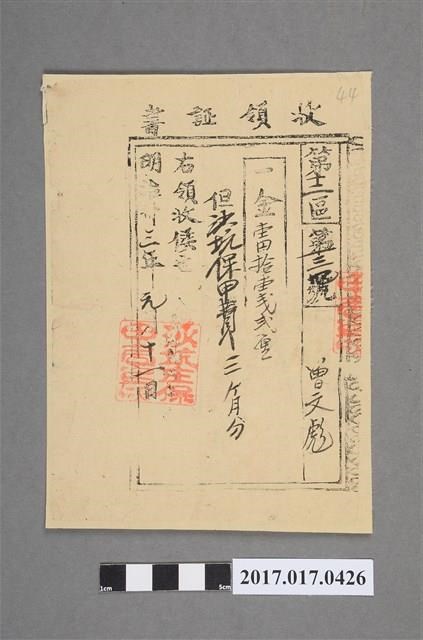 44
收領証書
第十二區 第三號
曾文彪
一金壹円拾壹戔貳厘
但 坑保甲費三ケ月分
右領收候也
明治 三年元月十一日
1cm
5cm
2017.017.0426